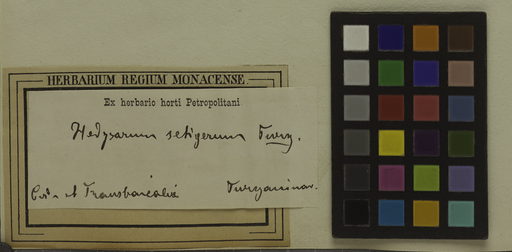 HERBARIUM REGIUM MONACENSE.
Ex herbario horti Petropolitani
Hedysarum setigerum Turcz.
Transbaicalia Turczaninow.